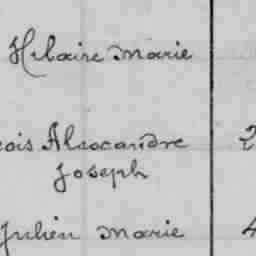 Hilaire Marie
çois Alexandre 2
Joseph
Julien Marie 4